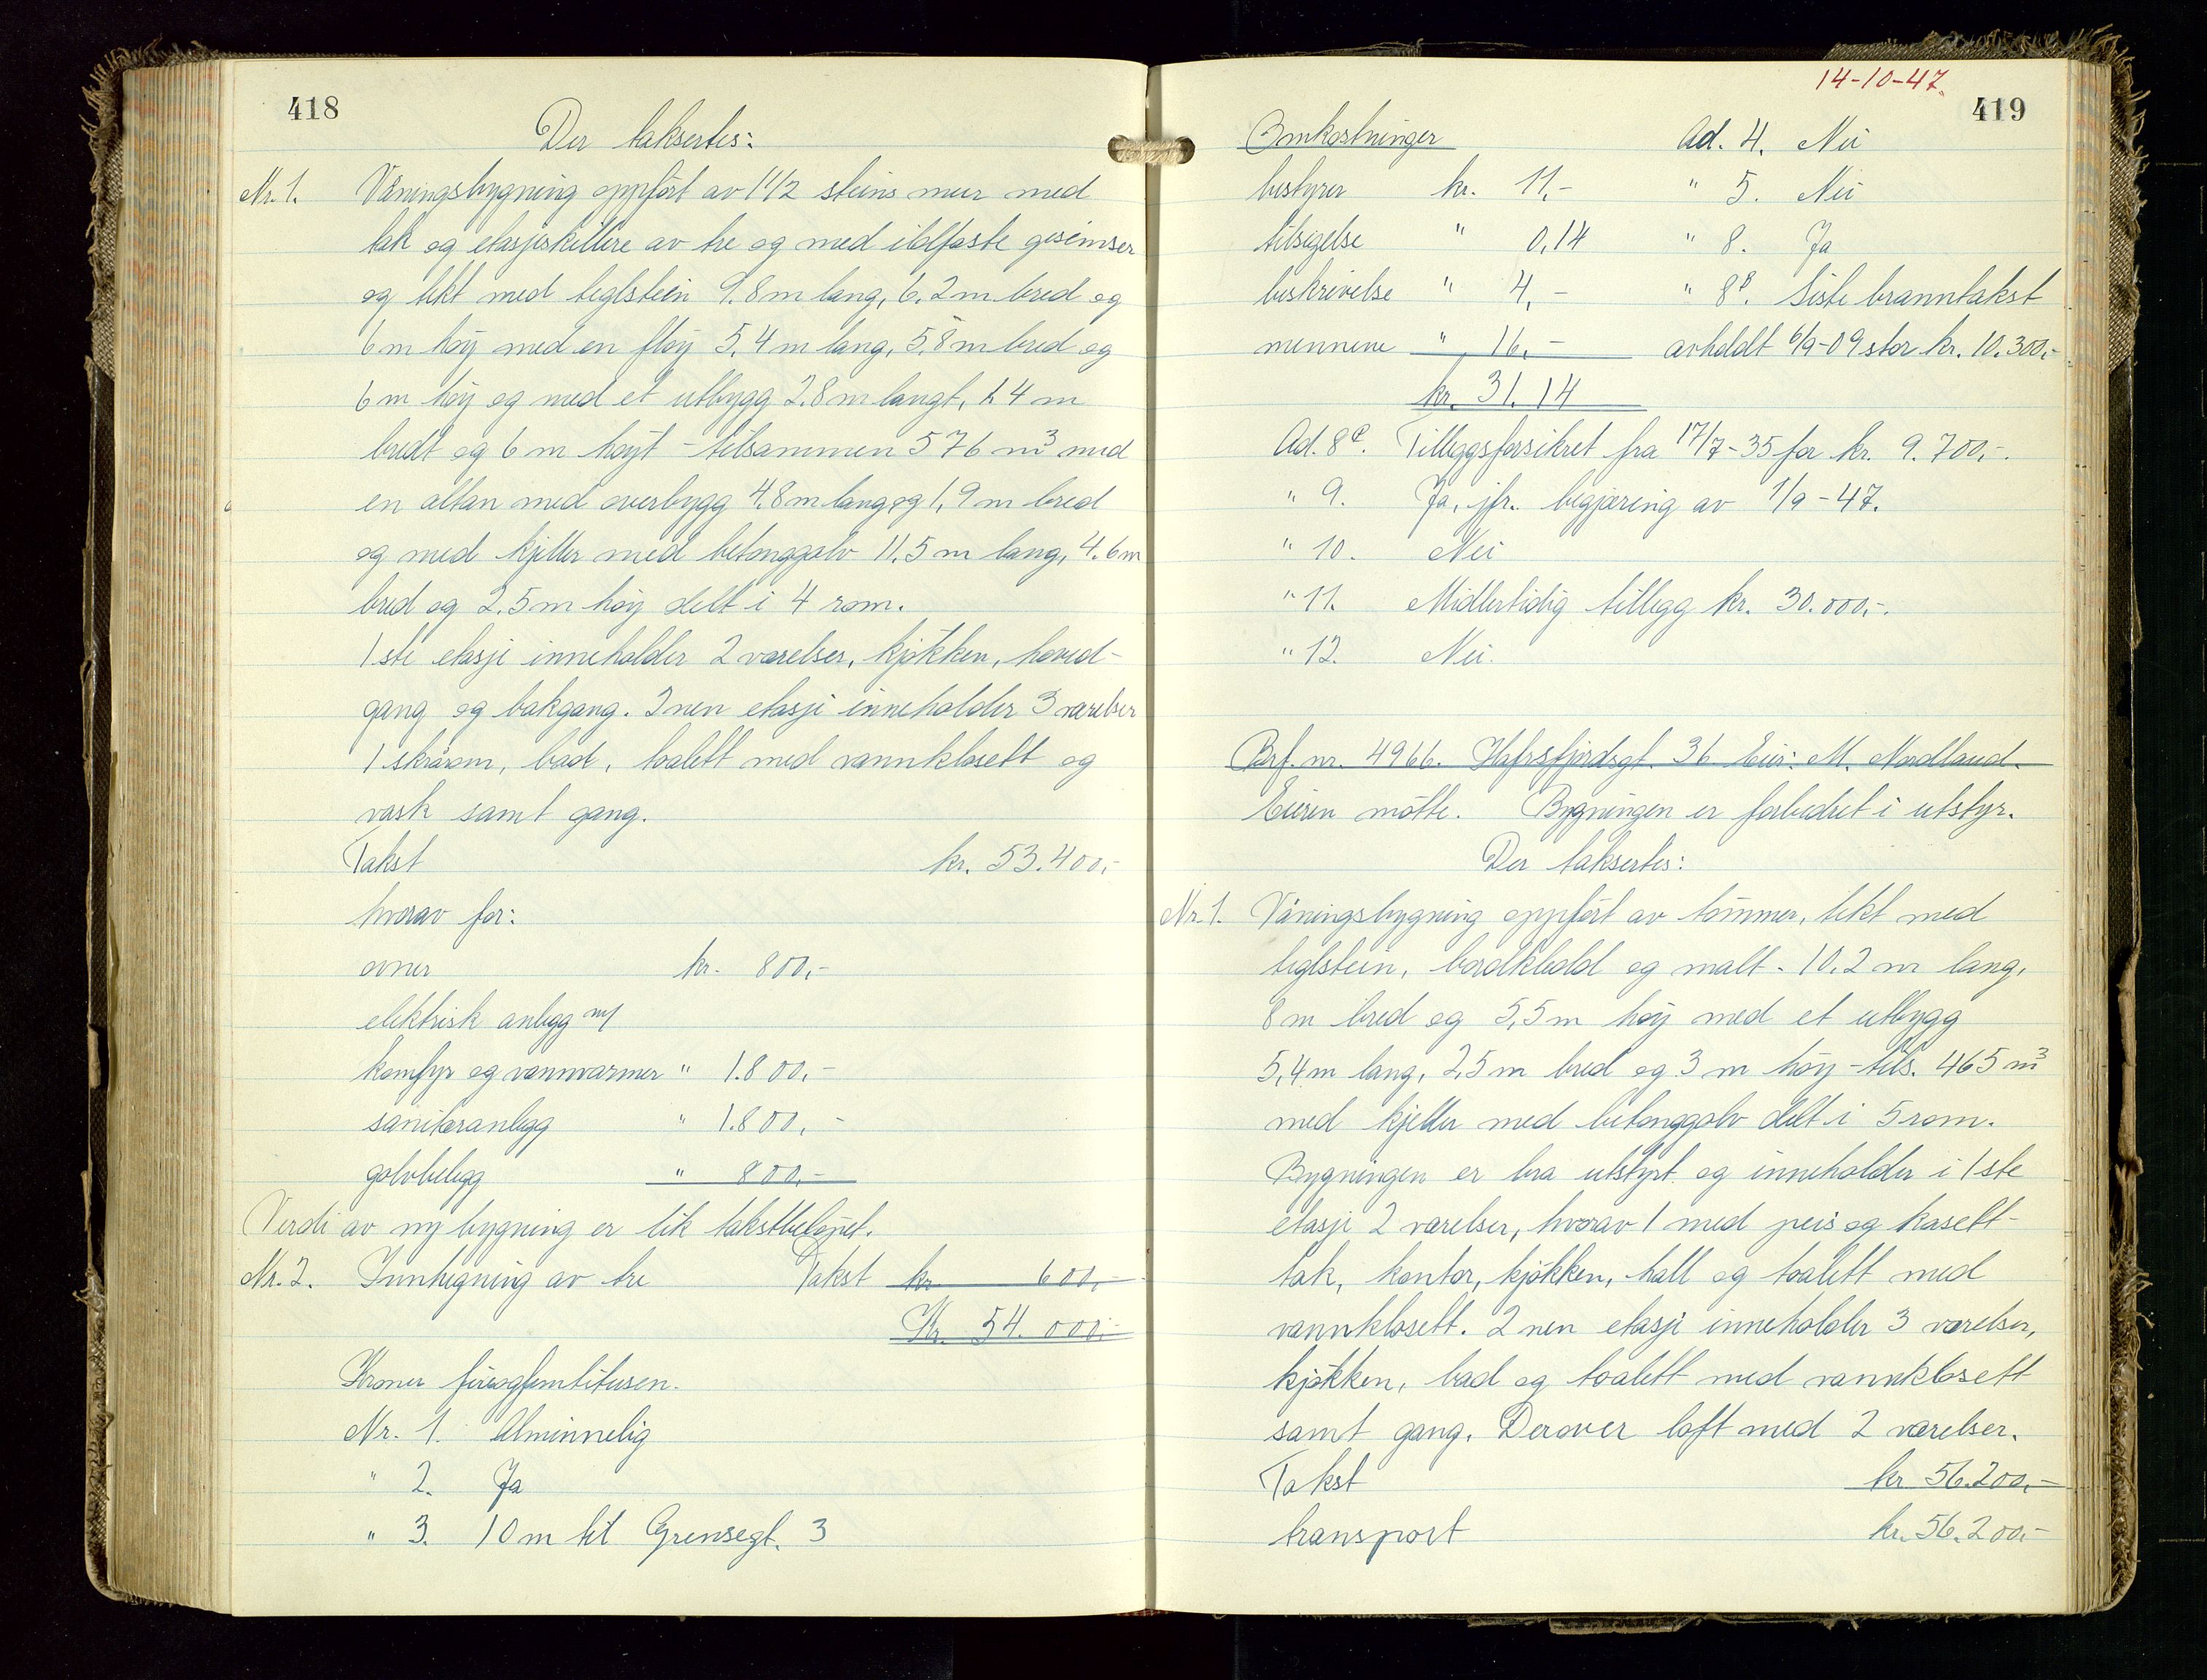 418
Der taksertes:
Nr. 1. Våningsbygning oppført av 1 1/2 steins mur med
tak og etasjeskillere av tre og med ildfaste gesimser
og tekt med teglstein 9.8 m lang, 6,2 m bred og
6 m høy med en fløy 5,4 m lang, 5,8 m bred og
6 m høy og med et utbygg 2.8 m langt, 1.4 m
bredt og 6 m høyt - tilsammen 576 m³ med
en altan med overbygg 4.8 m lang og 1,9 m bred
og med kjeller med betonggolv 11.5 m lang, 4.6 m
bred og 2.5 m høy delt i 4 rom.
1ste etasje inneholder 2 værelser, kjøkken, hoved-
gang og bakgang. 2nen etasje inneholder 3 værelser
1 skrårom, bad, toalett med vannklosett og
vask samt gang.
Takst kr. 53.400,-
hvorav for:
ovner kr. 800,-
elektrisk anlegg m/
komfyr og vannvarmer " 1.800,-
sanitæranlegg " 1.800,-
golvbelegg " 800,-
Verdi av ny bygning er lik takstbeløpet.
Nr. 2. Innhegning av tre Takst kr 600,-
Kr. 54.000,-
Kroner fireogfemtitusen.
Nr. 1. Alminnelig
" 2. Ja
" 3. 10 m til Grensegt. 3
14-10-47.
419
Omkostninger Ad. 4. Nei
bestyrer kr. 11,- " 5. Nei
tilsigelse " 0,14 " 8. Ja
beskrivelse " 4,- " 8ᴮ. Siste branntakst
mennene " 16,- avholdt 6/9-09 stor kr. 10.300,-
kr. 31.14
Ad. 8ᶜ. Tilleggsforsikret fra 17/7-35 for kr. 9.700,-.
" 9. Ja, jfr. begjæring av 1/9-47.
" 10. Nei
" 11. Midlertidig tillegg kr. 30.000,-.
" 12. Nei.
Brf. nr. 4966. Hafrsfjordsgt. 36 Eier: M. Nordland.
Eieren møtte. Bygningen er forbedret i utstyr.
Der taksertes:
Nr. 1. Våningsbygning oppført av tømmer, tekt med
teglstein, bordkledd og malt. 10.2 m lang,
8 m bred og 5,5 m høy med et utbygg
5,4 m lang, 2,5 m bred og 3 m høy - tils. 465 m³
med kjeller med betonggolv delt i 5 rom.
Bygningen er bra utstyrt og inneholder i 1ste
etasje 2 værelser, hvorav 1 med peis og kasett-
tak, kontor, kjøkken, hall og toalett med
vannklosett. 2nen etasje inneholder 3 værelser,
kjøkken, bad og toalett med vannklosett
samt gang. Derover loft med 2 værelser.
Takst kr 56.200,-
transport kr. 56.200,-